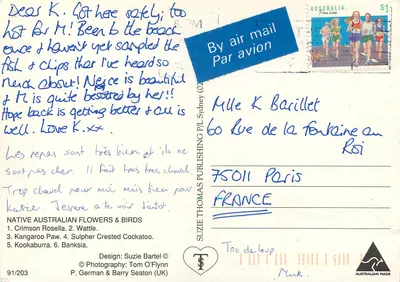 Dear K. Got here safely; to
hot for M! Been to the beach
once & haven't yet sampled the
fish & chips that I've heard so
much about! Niece is beautiful
& M is quite besotted by her!!
Hope back is getting better & all is
well. Love K.xx.
Les repas sont très bien et ils ne
sont pas cher. Il fait très très chaud
Trop chaud pour moi mais bien pour
Katie. J'espère a te voir bientôt
NATIVE AUSTRALIAN FLOWERS & BIRDS
1. Crimson Rosella. 2. Wattle.
3. Kangaroo Paw. 4. Sulpher Crested Cockatoo.
5. Kookaburra. 6. Banksia.
Design: Suzie Bartel ©
© Photography: Tom O'Flynn
91/203 P. German & Barry Seaton (UK)
SUZIE THOMAS PUBLISHING P/L Sydney (02
By air mail
Par avion
AUSTRALIA $1
Fun Run
Mlle K Barillet
60 Rue de la Fontaine au
Roi
75011 Paris
FRANCE
Too de loop
AUSTRALIAN MADE